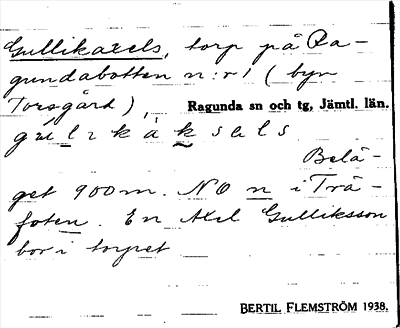 Gullikaxels, torp på Ra-
gundabotten n:r 1 (byn
Torsgård), Ragunda sn och tg, Jämtl. län.
Belä-
get 900 m. NO n i Trä-
foten. En Axel Gulliksson
bor i torpet
BERTIL FLEMSTRÖM 1938.